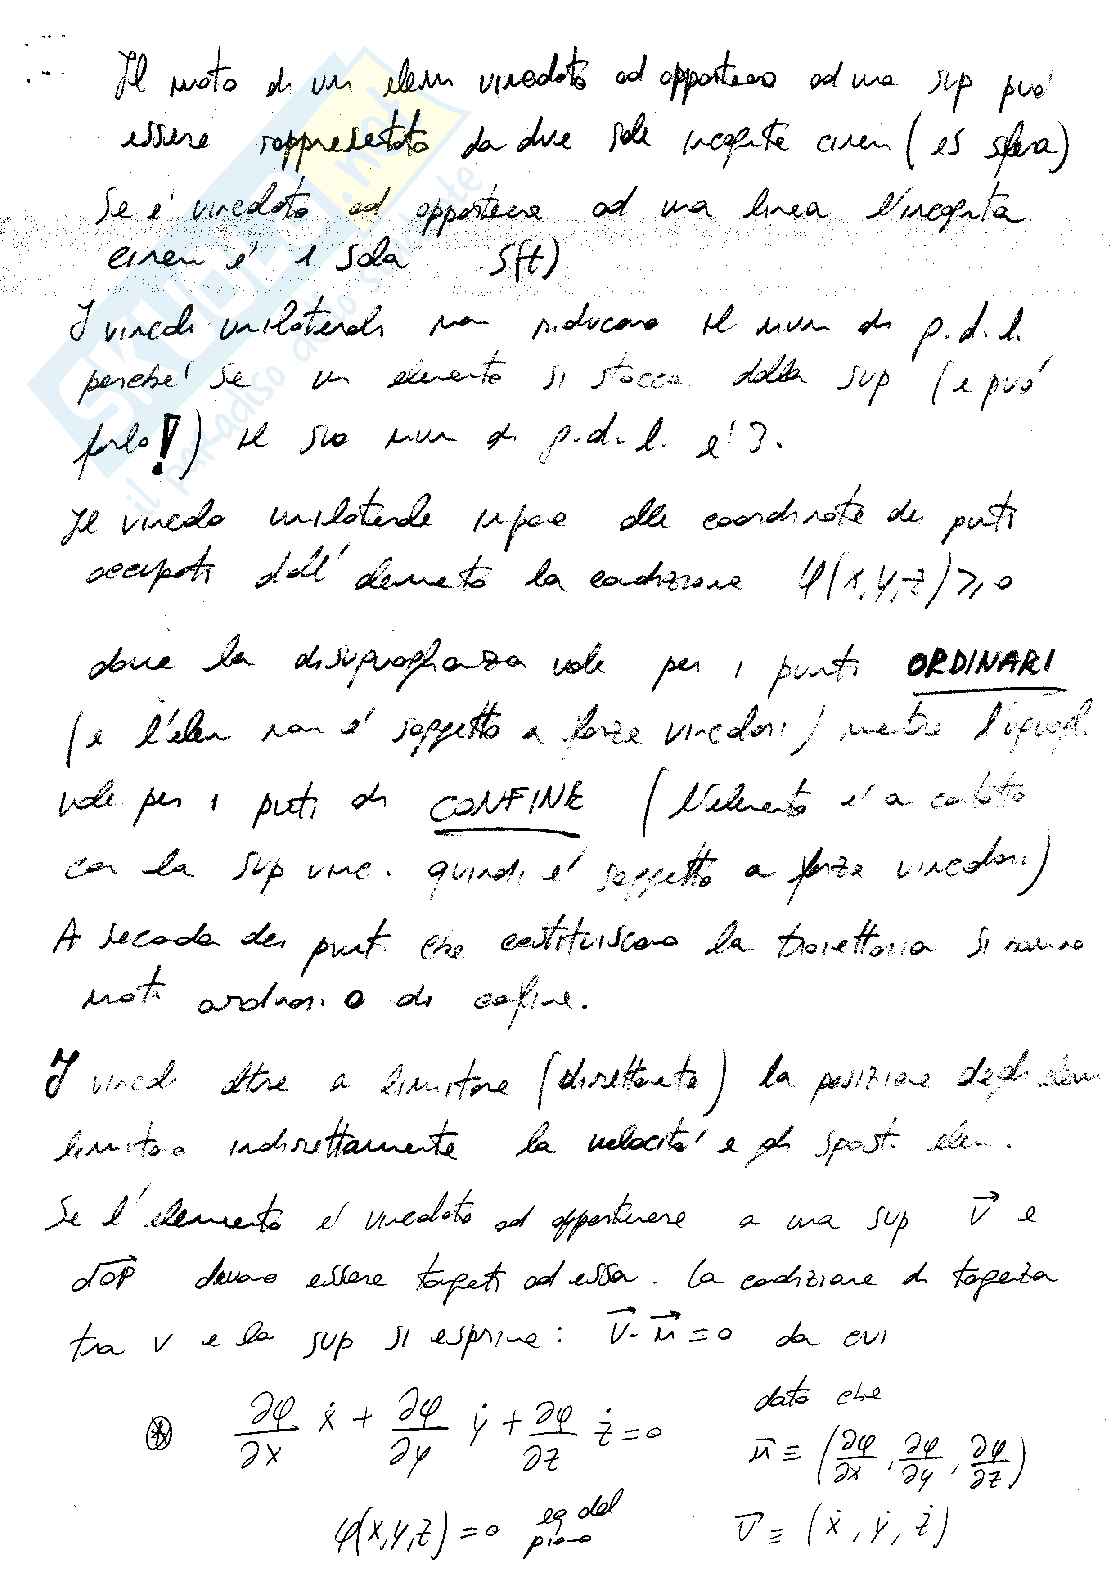 Il moto di un elem vincolato ad appartenere ad una sup può
essere rappresentato da due sole incognite cinem (es sfera)
Se e' vincolato ad appartenere ad una linea l'incognita
cinem e' 1 sola S(t)
I vincoli unilaterali non riducono il num di g.d.l.
perche' se un elemento si stacca dalla sup (e può
farlo!) il suo num di g.d.l. e' 3.
Il vincolo unilaterale impone alle coordinate dei punti
occupati dall'elemento la condizione φ(x,y,z) ≥ 0
dove la disuguaglianza vale per i punti ORDINARI
(e l'elem non e' soggetto a forze vincolari) mentre l'uguagl.
vale per i punti di CONFINE (l'elemento e' a contatto
con la sup vinc. quindi e' soggetto a forze vincolari)
A seconda dei punti che costituiscono la traiettoria si hanno
moti ordinari o di confine.
I vincoli oltre a limitare (direttamente) la posizione degli elem
limitano indirettamente la velocita' e gli spost. elem.
Se l'elemento e' vincolato ad appartenere a una sup V⃗ e
dOP⃗ devono essere tangenti ad essa. La condizione di tangenza
tra v e la sup si esprime: V⃗·n⃗ = 0 da cui
⊛ ∂φ/∂x ẋ + ∂φ/∂y ẏ + ∂φ/∂z ż = 0
dato che
n⃗ ≡ (∂φ/∂x, ∂φ/∂y, ∂φ/∂z)
φ(x,y,z) = 0 eq del piano
V⃗ ≡ (ẋ, ẏ, ż)